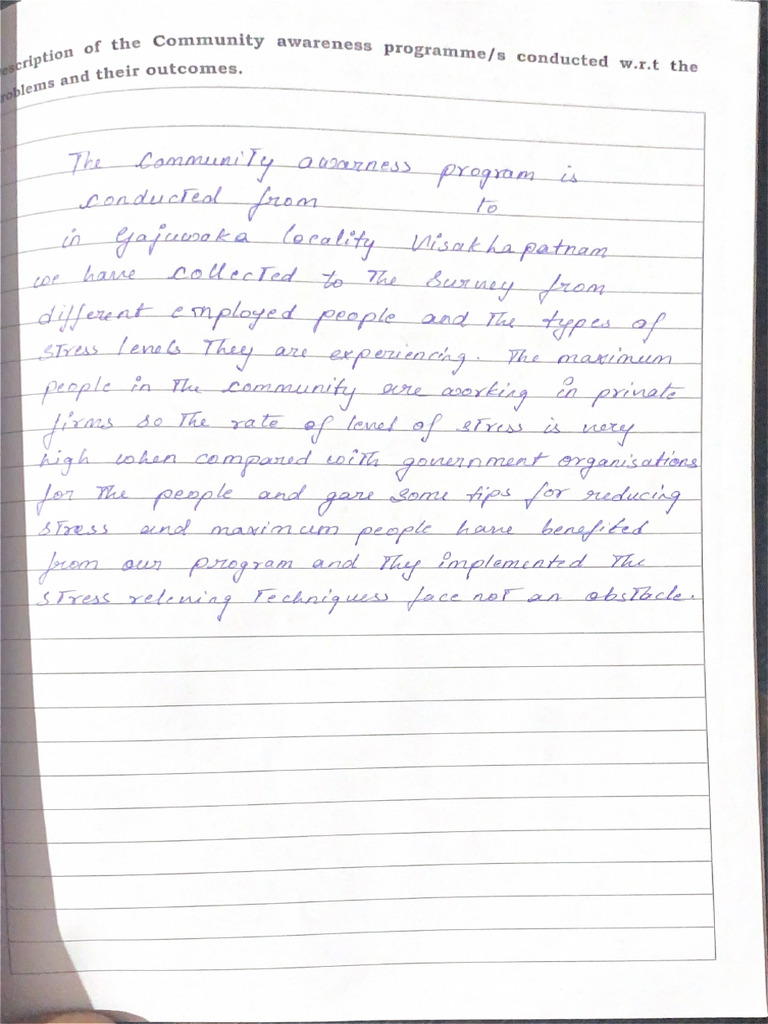 escription of the Community awareness programme/s conducted w.r.t the
roblems and their outcomes.
The Community awarness program is
conducted from to
in Gajuwaka locality Visakhapatnam
we have collected to the survey from
different employed people and the types of
stress levels They are experiencing. The maximum
people in the community are working in private
firms so the rate of level of stress is very
high when compared with government organisations
for the people and gave some tips for reducing
stress and maximum people have benefited
from our program and they implemented the
stress releving Techniquess face not an obstacle.